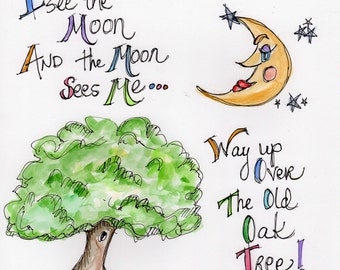 I see the
Moon
And the Moon
Sees Me...
Way up
Over
The Old
Oak
Tree!